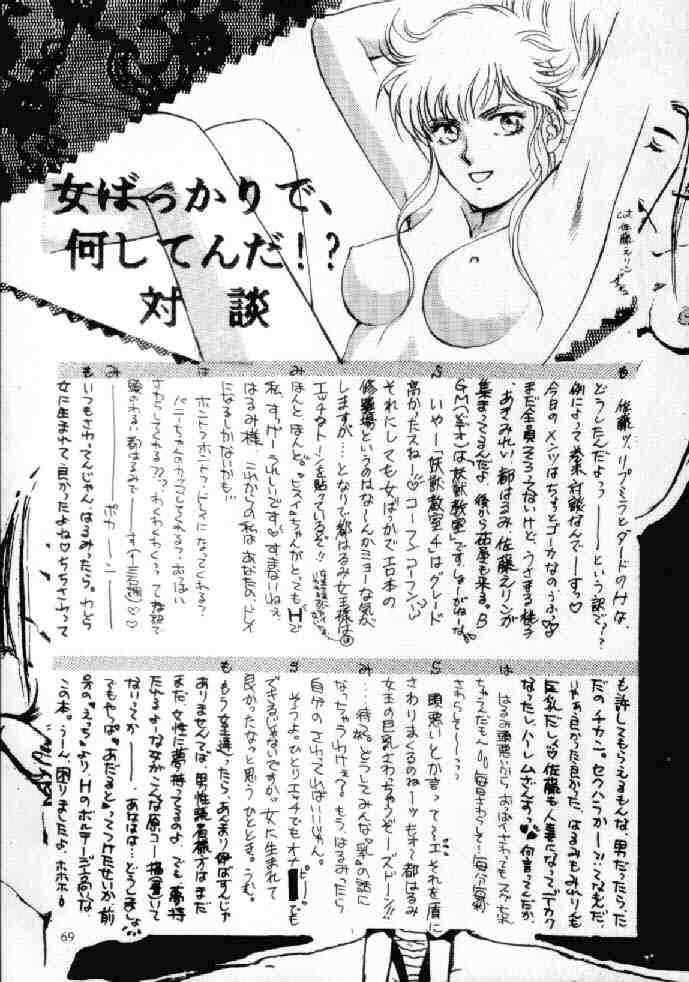 女ばっかりで、
何してんだ!?
対談
cut 佐藤えりン
も 佐藤ッ、リプミラとダードのHな、
どうしたんだよっっ———という訳で??
例によって巻末対談なんで———すっ♡
今日のメンツはちょっとゴーカなのうふっ♡
まだ全員そろってないけど、うさまる桃子
、あさみれい、都はるみ、佐藤えりンが
集まってるんだよ。後から西尾も来る。B
GMはビデオ「妖獣教室」です、しょーがねーな。
S いやー「妖獣教室チ」はグレード
高かったスねー♡コーフンコーフン
それにしても女ばっかでエロ本の
修羅場というのはなーんかミョーな気が
しますが…となりで都はるみ女王様は
エッチなトーンを貼っているぞ!!
み ほんと、ほんと。ヒスイちゃんがとっても"Hで
私、すっげーうれしいです♡すまないねえ
はるみ様、これからの私はあなたの、ドレイ
になるしかないかも…
は ホントっホントっ?ドレイになってくれる?
バニーちゃんのカッコしてくれる?おっぱい
さわらしてくれる??わくわくわくっってな訳で
頭のわるい都はるみで———す
み ————ポカ—ン————
も いつもさわってんじゃん、はるみったら。わたし
女に生まれて良かったよね♡ちちさわって
も許してもらえるもんな、男だったらた
だのチカン。セクハラかー?!ってなもんだ、
いやぁ良かった良かった、はるみもみゅりんも
巨乳だし♡佐藤も人妻になってデカク
なったし、ハーレムさんよっ♡何言ってんだか、
は はるみ頭悪いからおっぱいさわってもスグ忘れ
ちゃうんだもーん。毎日さわらして!毎分毎秒
さわらして〜〜っ?
S 頭悪いとか言ってェそれを盾に
さわりまくるのねーッ もォ〜都はるみ
女王の巨乳さわっちゃうぞーズドーン!!
み …待て。どうしてみんな"乳の話に
なっちゃうわけェ?もう、はるみったら
自分のさわってればいいじゃん。
S そうよ。ひとりエッチでもオナ■でも
できるじゃないですか。女に生まれて
良かったなっと思うひととき。うむ。
も もう女王達ったら、あんまり伊ばすんじゃ
ありませんてば、男性読者様方はまだ
まだ、女性に夢持ってるのよ。でも夢持
たせるよーな女がこんな原コー描いて
なりってか———、あははは…どうしましょ。
でもやっぱ"あだると"ってつけたせいか、前
号の"えっち"より、Hのボルテージ高いな、
この本。うーん、困りましたよ、ホホホ。
69